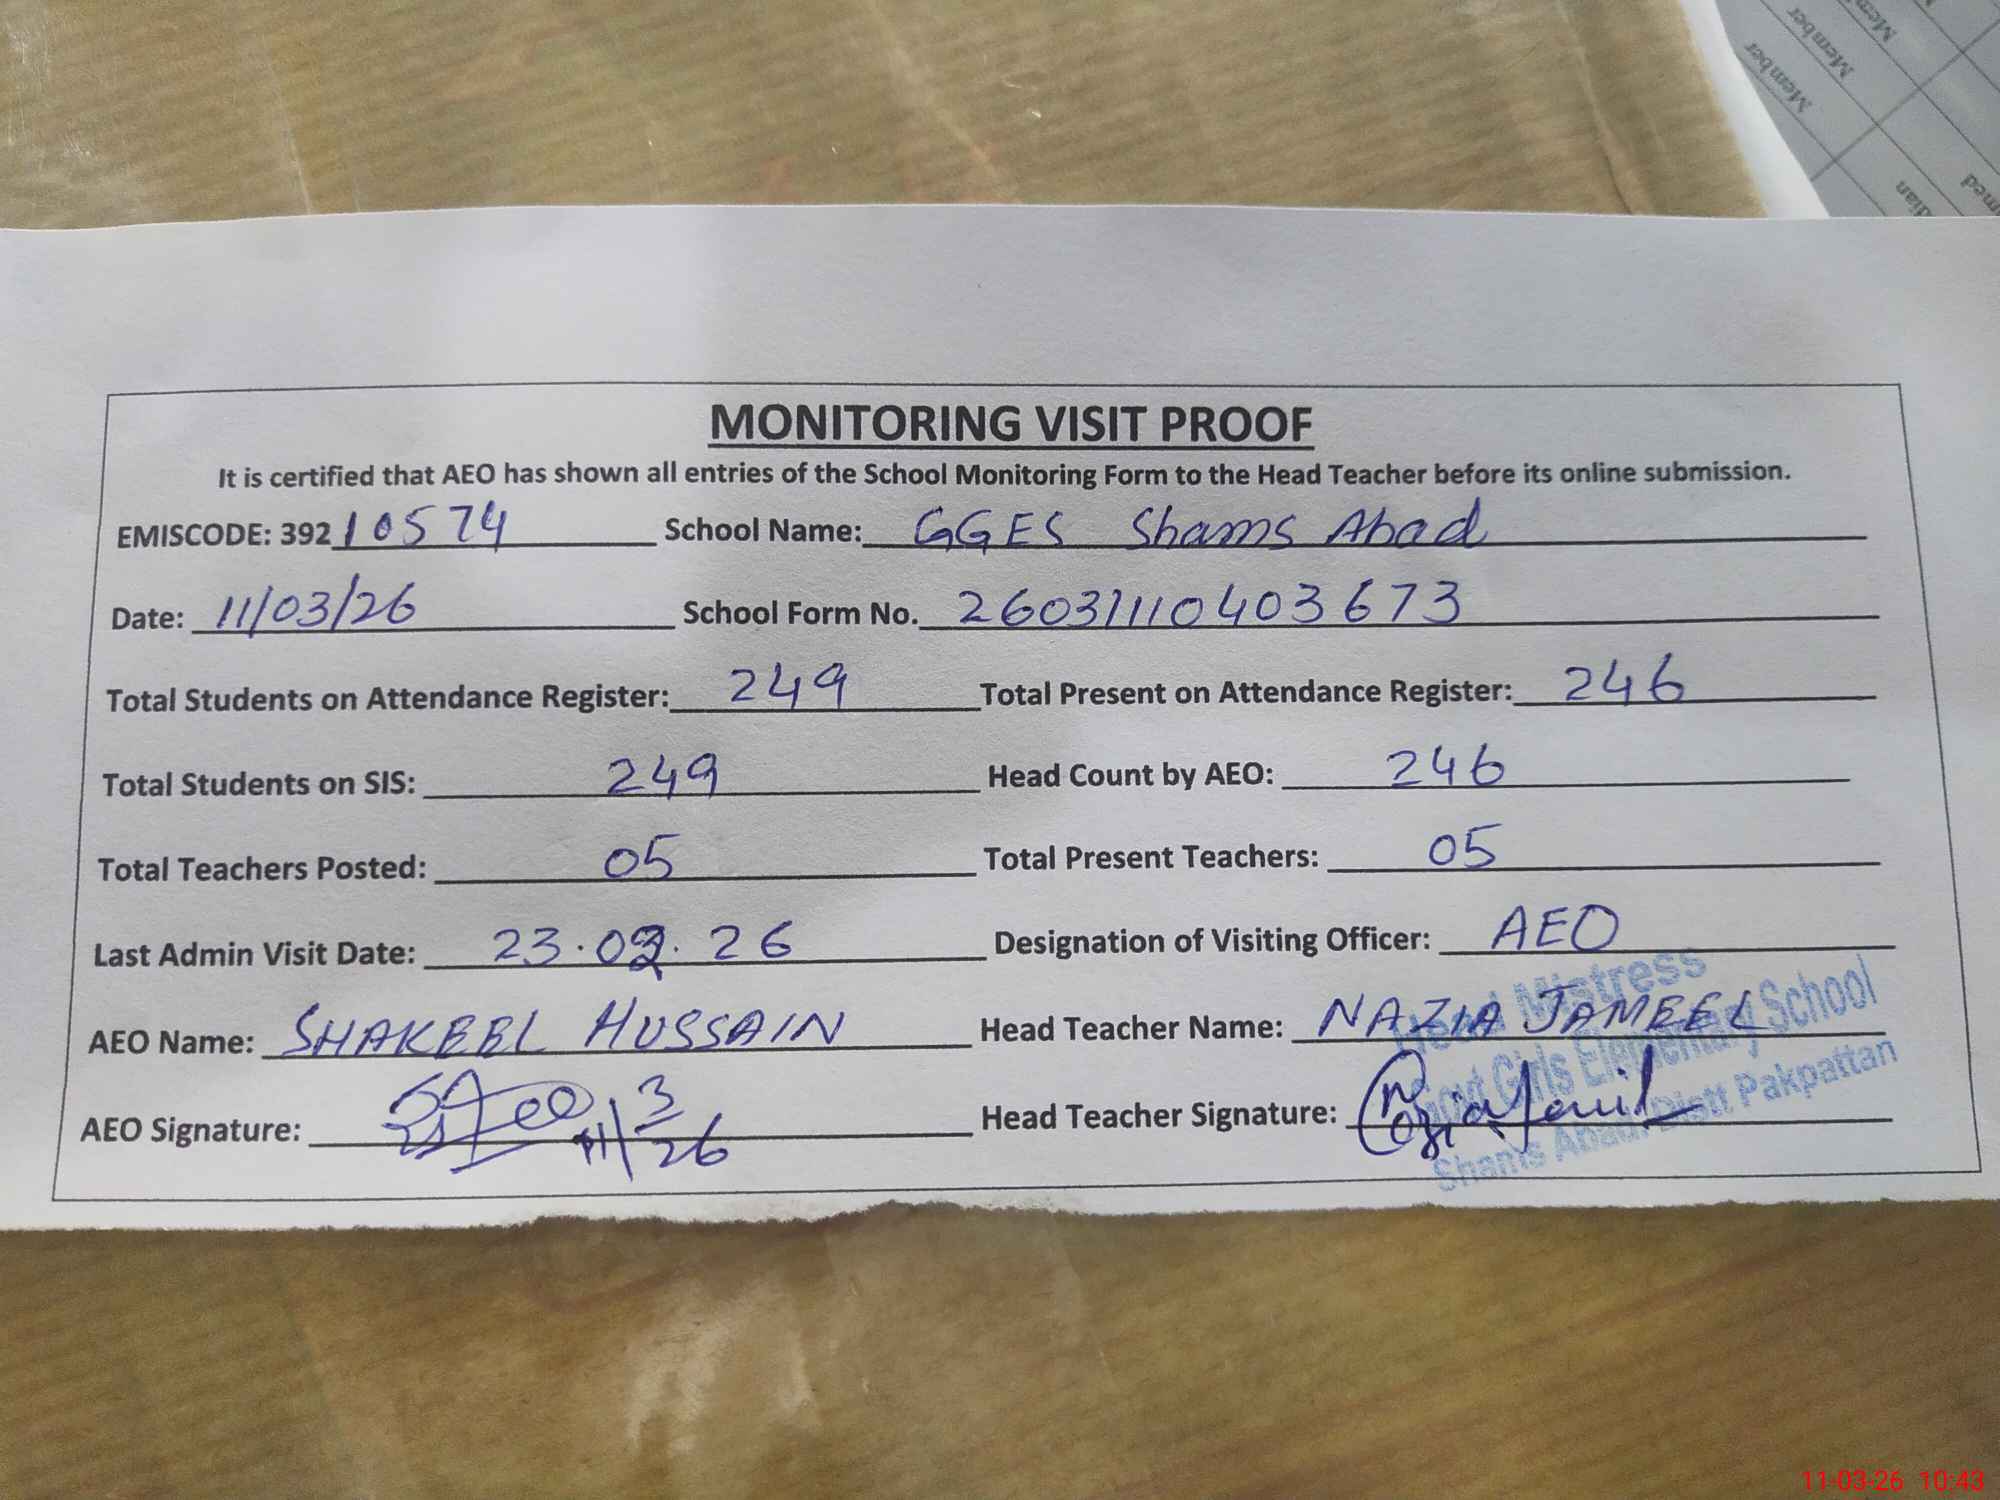 Member
Member
MONITORING VISIT PROOF
It is certified that AEO has shown all entries of the School Monitoring Form to the Head Teacher before its online submission.
EMISCODE: 39210574 School Name: GGES Shams Abad
Date: 11/03/26 School Form No. 26031110403673
Total Students on Attendance Register: 249 Total Present on Attendance Register: 246
Total Students on SIS: 249 Head Count by AEO: 246
Total Teachers Posted: 05 Total Present Teachers: 05
Last Admin Visit Date: 23.02.26 Designation of Visiting Officer: AEO
AEO Name: SHAKEEL HUSSAIN Head Teacher Name: NAZIA JAMEEL
AEO Signature: 11/3/26 Head Teacher Signature:
Head Mistress
Govt Girls Elementary School
Shams Abad Distt Pakpattan
11-03-26 10:43